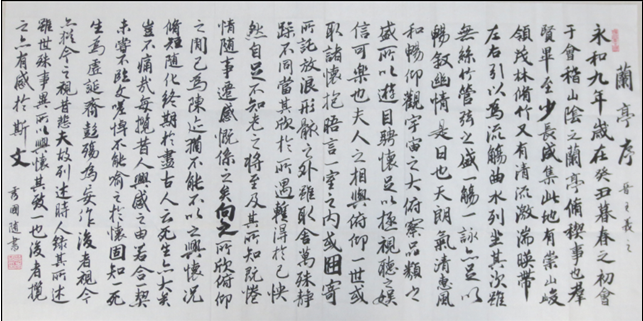 蘭亭序 晉王羲之
永和九年歲在癸丑暮春之初會
于會稽山陰之蘭亭脩稧事也羣
賢畢至少長咸集此地有崇山峻
領茂林脩竹又有清流激湍暎帶
左右引以為流觴曲水列坐其次雖
無絲竹管弦之盛一觴一詠亦足以
暢叙幽情是日也天朗氣清惠風
和暢仰觀宇宙之大俯察品類之
盛所以遊目騁懷足以極視聽之娛
信可樂也夫人之相與俯仰一世或
取諸懷抱晤言一室之內或因寄
所託放浪形骸之外雖取舍萬殊静
躁不同當其欣於所遇輙得於己怏
然自足不知老之將至及其所知既惓
情隨事遷感慨係之矣向之所欣俯仰
之閒已為陳迹猶不能不以之興懷況
脩短隨化終期於盡古人云死生亦大矣
豈不痛哉每攬昔人興感之由若合一契
未嘗不臨文嗟悼不能喻之於懷固知一死
生為虛誕齊彭殤為妄作後者視今
亦猶今之視昔悲夫故列述時人錄其所述
雖世殊事異所以興懷其致一也後者攬
之亦有感於斯文